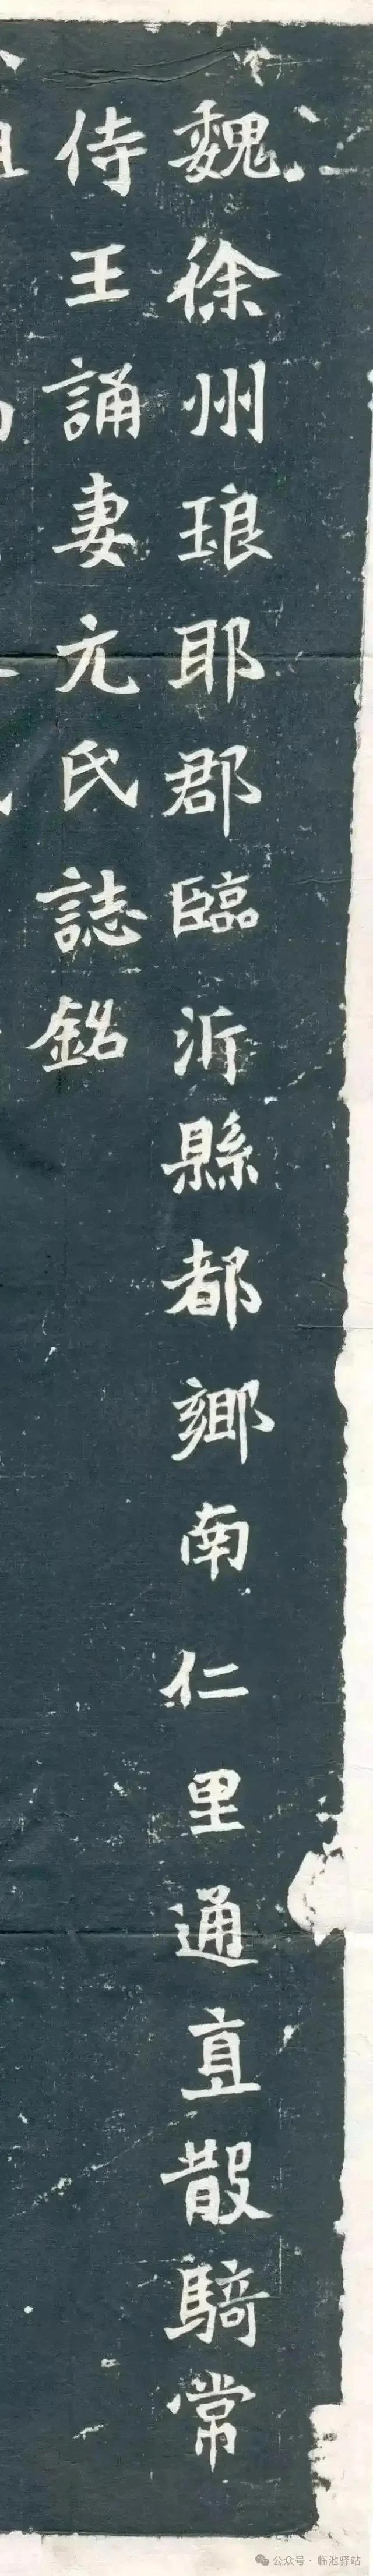 魏徐州琅耶郡臨沂縣都鄉南仁里通直散騎常
侍王誦妻元氏誌銘
公众号·临池驿站